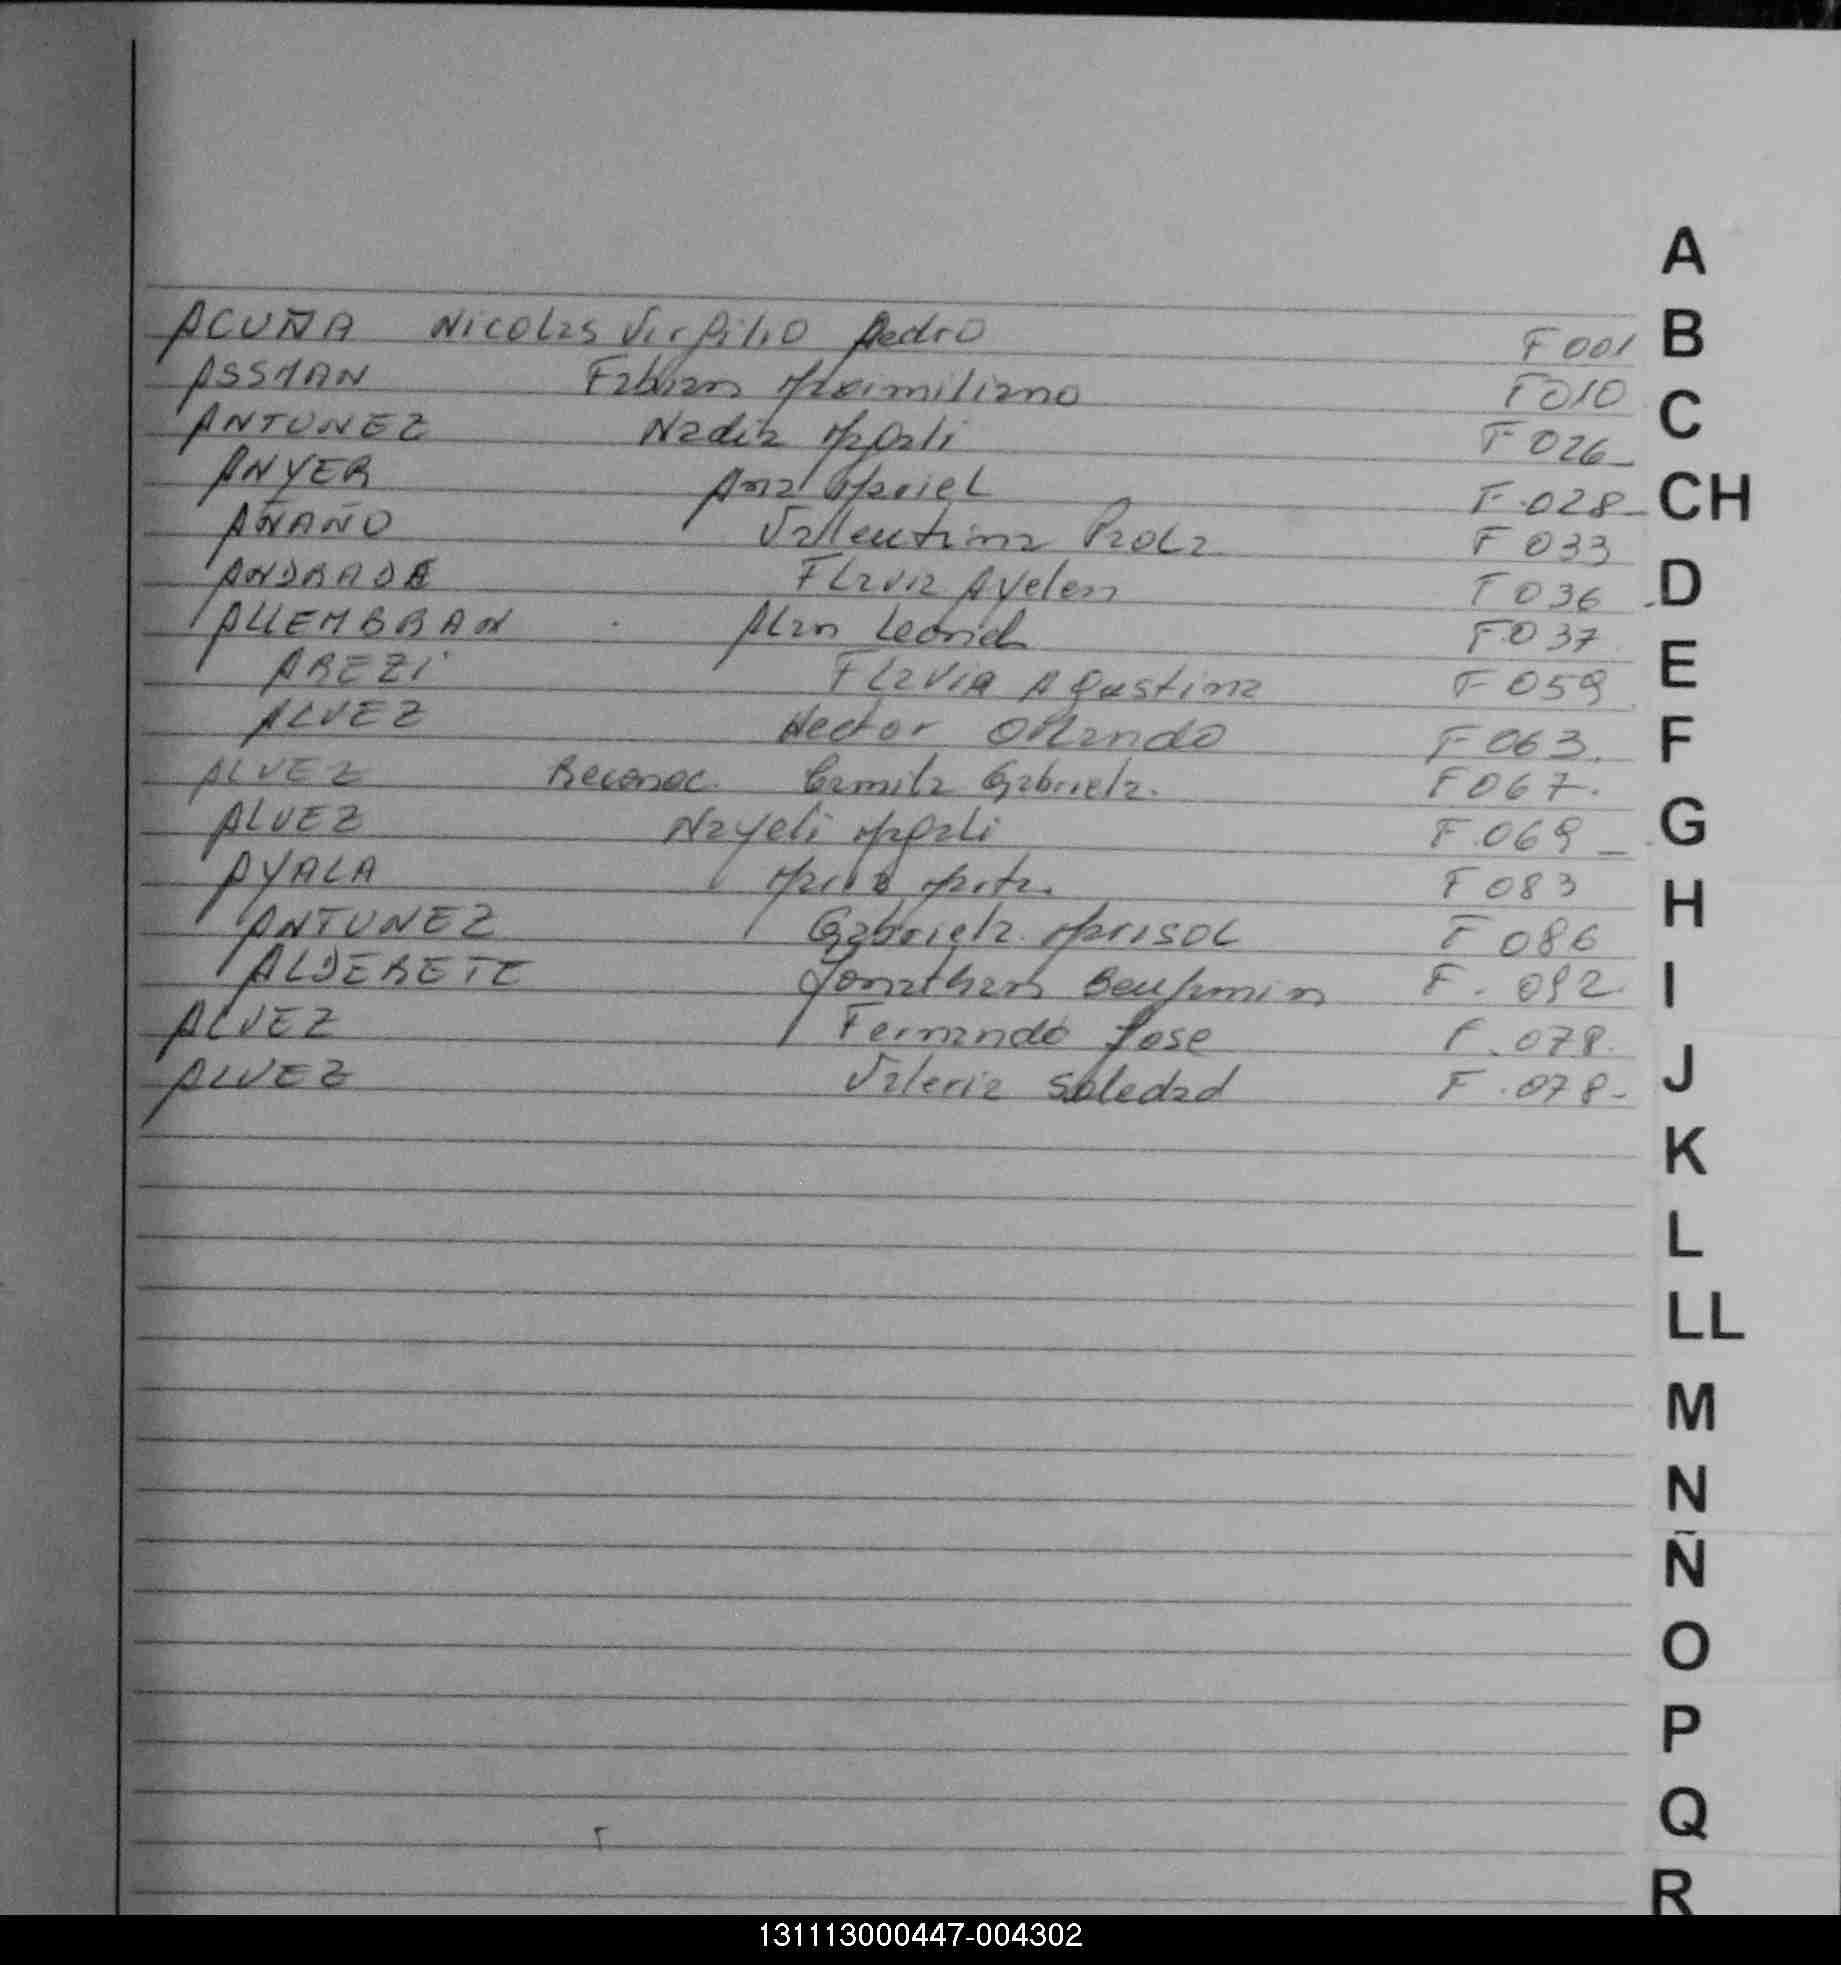 A
ACUÑA Nicolas Virgilio Pedro F 001
B
ASSMAN Fabian Maximiliano F 010
C
ANTUNEZ Nadia Magali F 026-
ANYER Ana Mariel F.028-
CH
AÑAÑO Vallentina Paola F 033
ANDRADE Flavia Ayelen F 036
D
ALLEMBRAN Alan Leonel F.037
E
AREZI Flavia Agustina F 059
ALVEZ Hector Orlando F 063.
F
ALVEZ Camila Gabriela. F 067.
ALVEZ Nayeli Magali F.069-
G
AYALA F 083
H
ANTUNEZ Gabriela Marisol F 086
ALDERETE Jonathan Benjamin F. 092.
I
ALVEZ Fernando Jose F.078.
J
ALVEZ Valeria Soledad F.078-
K
L
LL
M
N
Ñ
O
P
Q
R
131113000447-004302